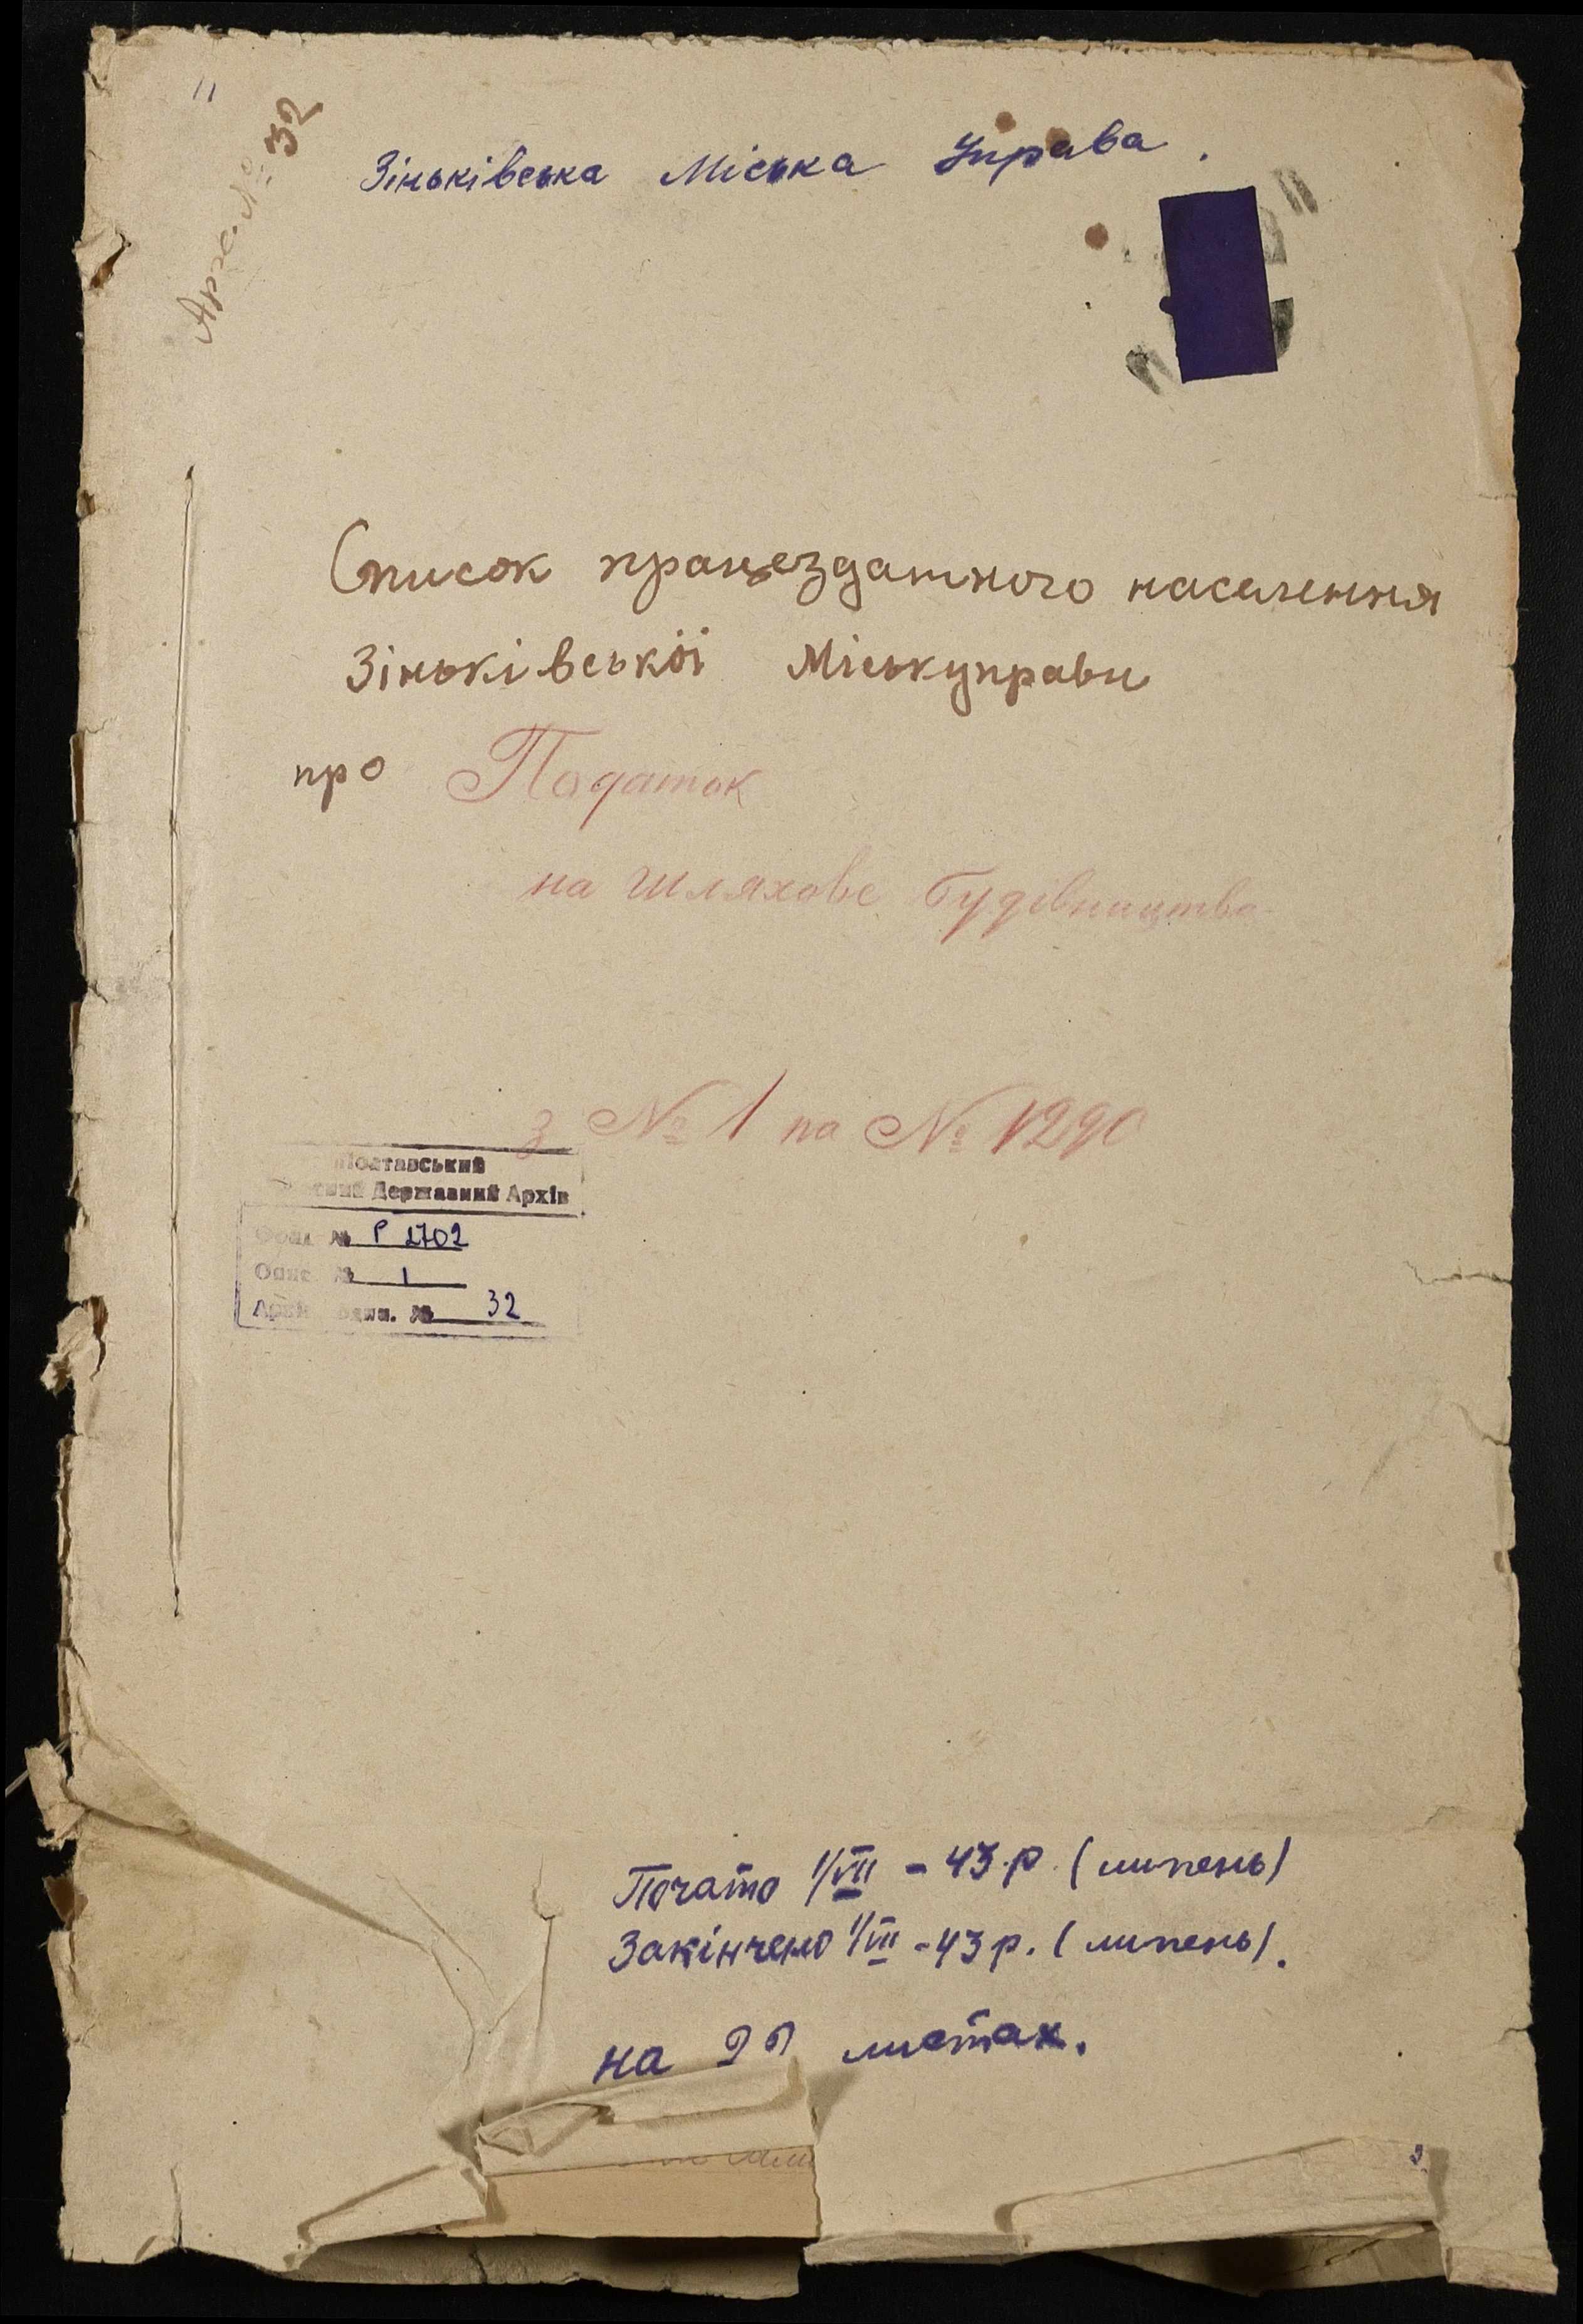 11
Арх. № 32
Зіньківська Міська Управа.
Список працездатного населення
Зіньківської Міськуправи
про Податок
на шляхове будівництво
з № 1 по № 1290
Полтавський
Державний Архів
Фонд № Р 2702
Опис № 1
№ 32
Почато 1/VII - 43.р. (липень)
Закінчено 1/VII - 43 р. (липень).
на листах.